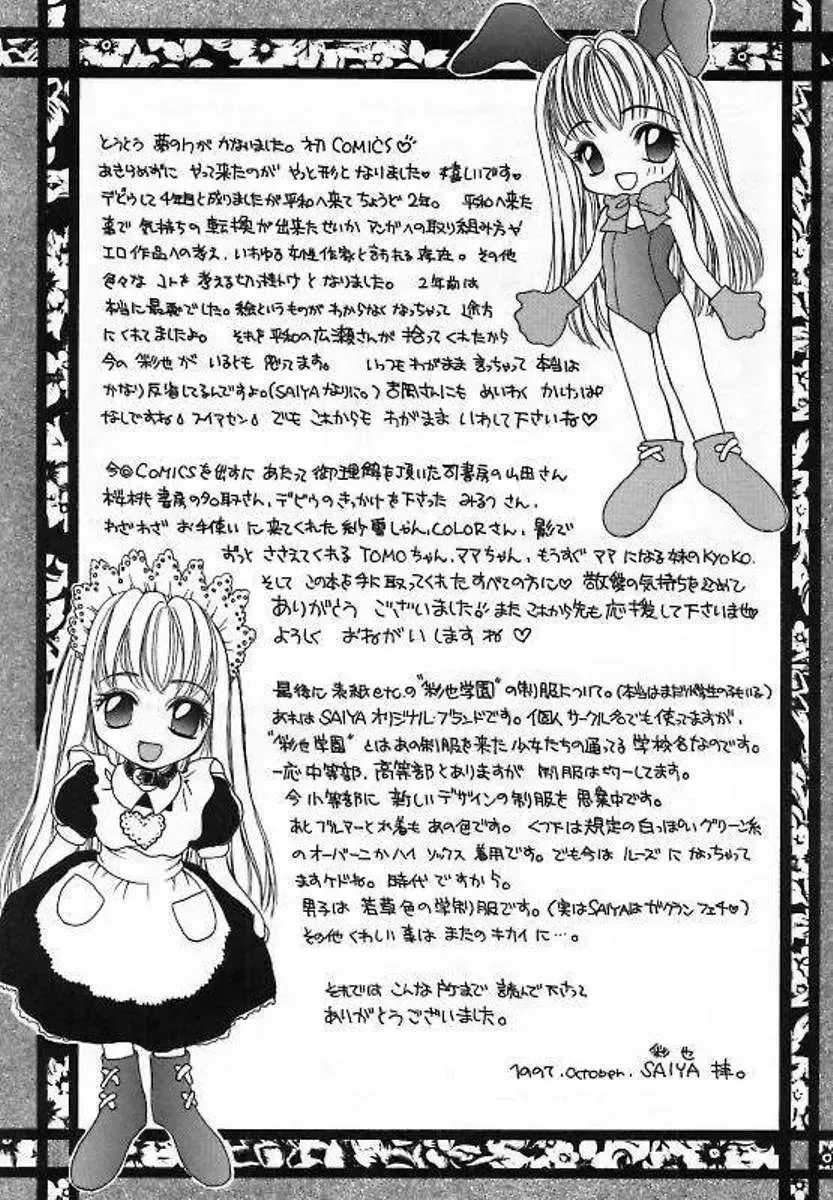 とうとう 夢の1つが かないました。初COMICS♡
あきらめずに やって来たのが やっと形と なりました♥ 嬉しいです♥
デビゥして4年目と成りましたが平和へ来て ちょうど2年。 平和へ来た
事で 気持ちの 転換が出来たせいか マンガへの取り組み方や
エロ作品への考え、いわゆる女性作家と言われる存在。その他
色々な コトを 考える 切っ掛けと なりました。 2年前は
本当に最悪でした。絵というものが わからなく なっちゃって 途方
にくれてましたよ。 それを平和の広瀬さんが 拾ってくれたから
今の 彩也が いるとも 思ってます。 いつもわがまま 言っちゃって 本当は
かなり反省してるんですよ。(SAIYAなりに。) 吉岡さんにも めいわく かけっぱ
なしですね スイマセン でも これからも わがまま いわして下さいね♡
今回COMICSを出すに あたって御理解を頂いた司書房の山田さん
桜桃書房の名取さん、デビゥのきっかけを下さった みるつさん、
わざわざ お手伝いに来てくれた 紗雪しゃん、COLORさん、影で
ずっと ささえてくれる TOMOちゃん、ママちゃん、もうすぐ ママになる妹のKYOKO.
そして この本を手に取ってくれた すべての方に♡ 敬愛の気持ちを込めて
ありがとう ございました また これから先も応援して下さいませ♡
よろしく おねがい しますね ♡
最後に 表紙etc.の "彩也学園" の制服について。
あれはSAIYAオリジナル・ブランドです。個人サークル名でも使ってますが、
"彩也学園" とは あの制服を来た少女たちの通ってる 学校名なのです。
一応中等部、高等部とありますが 制服は統一してます。
今 小等部に 新しいデザインの制服を 思案中です。
あと ブルマーと水着も あの色です。 くつ下は規定の白っぽいグリーン系
のオーバーニーかハイ ソックス 着用です。でも今は ルーズに なっちゃって
ますケドね。時代ですから。
男子は 若草色の学制服です。(実はSAIYAはガクラン フェチ♡)
その他 くわしい事は またのキカイに…。
それでは こんな所まで 読んで下さって
ありがとうございました。
彩也
1997.October. SAIYA 拝。